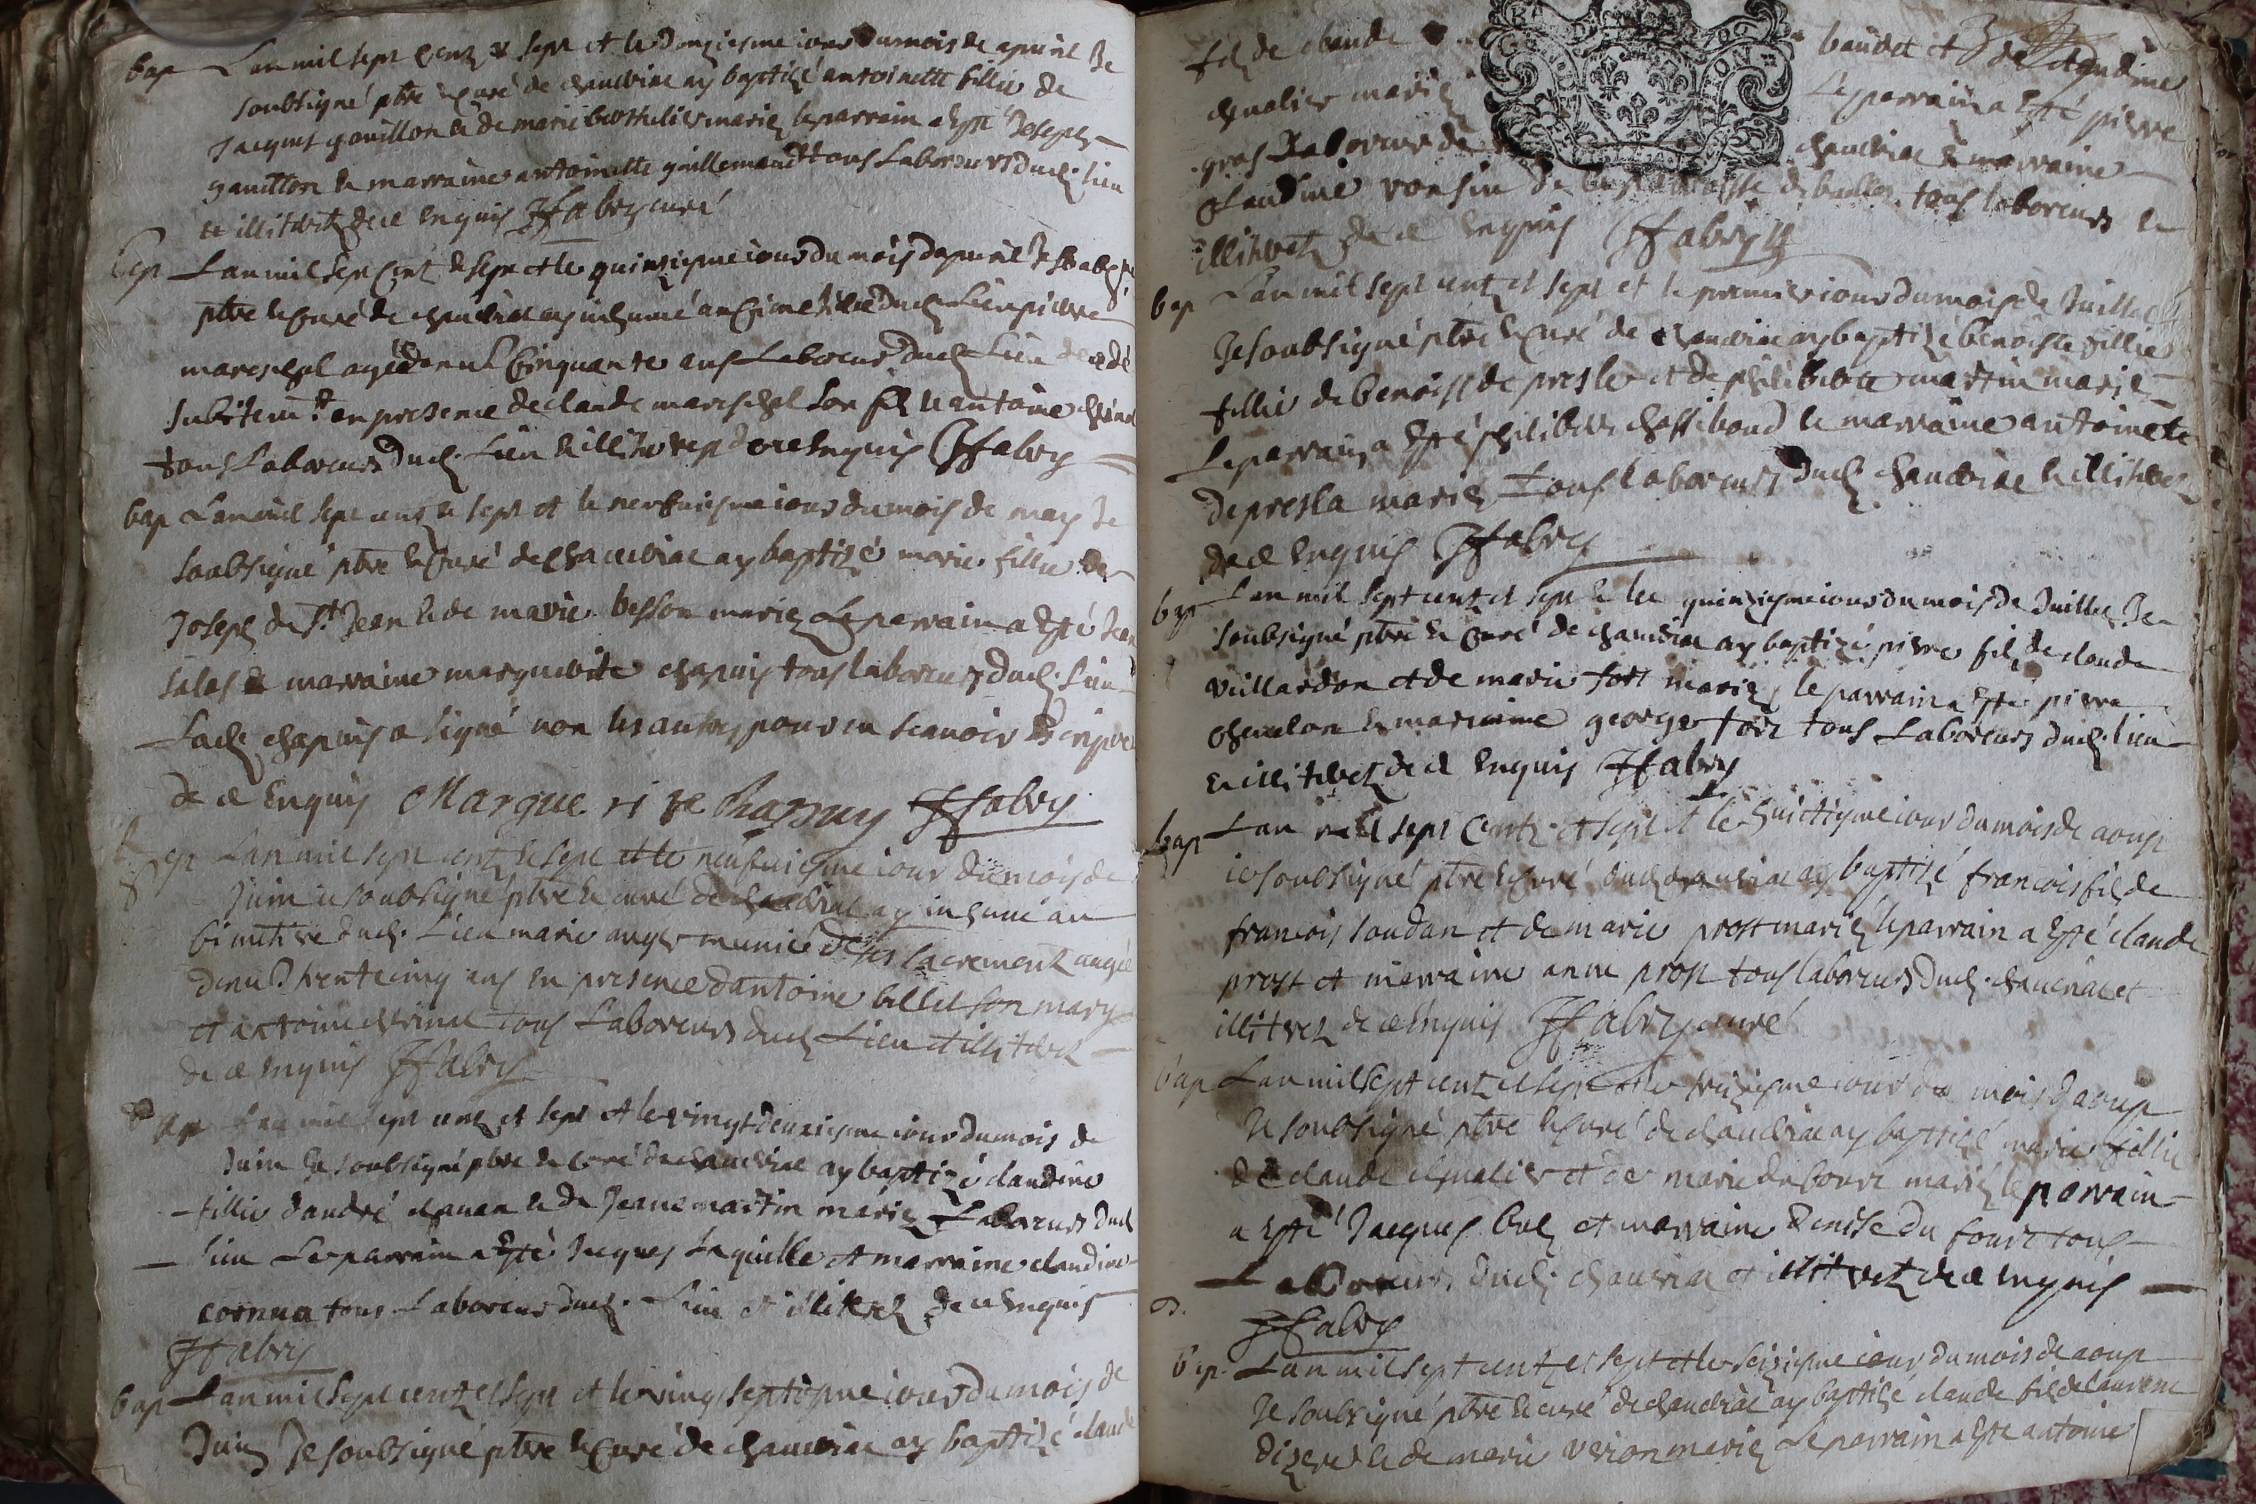 bap L'an mil sept centz & sept et le douziesme iour du mois de apuril Je
soubsigné ptre & curé de chauviac ay baptizé antoinette fillie de
Jacques gouillon & de marie berthelier mariez le parrain a esté Joseph
gouillon & marraine antoinette guillemaud tous Laboreurs dud. lieu
et illitrez de ce enquis JFabry curé
Sep L'an mil sept centz & sept et le quinziesme iour du mois d'apuril Je
ptre & curé de chauviac ay inhumé au cimetiere dud. Lieu pierre
mareschal agé denv. Cinquante ans Laboreur dud. Lieu
subitemt. en presence de claude mareschal son filz & antoine
tous Laboreurs dud. Lieu & de ce enquis JFabry
bap L'an mil sept centz & sept et le neufuiesme iour du mois de may Je
soubsigné ptre & curé de chauviac ay baptizé marie fillie de
Joseph de St. Jean & de marie besson mariez Le parrain a esté Jean
salas & marraine marguerite chapuis tous laboreurs dud. Lieu
Lade. chapuis a signé non les autres pour ne scauoir escripre
de ce enquis Margue ri te Chapuy JFabry
Sep L'an mil sept centz & sept et le neufuiesme iour du mois de
Juin ie soubsigné ptre & curé de chauviac ay inhumé au
cimetiere dud. Lieu marie munie de ses sacrementz aagée
denv. trente cinq ans en presence d'antoine billet son mary
et antoine tous Laboreurs dud. Lieu et illitrez
de ce enquis JFabry
bap L'an mil sept centz et sept et le vingt deuxiesme iour du mois de
Juin Je soubsigné ptre & curé de chauviac ay baptizé claudine
fillie d'andré chanan & de Jeane martin mariez Laboreurs dud.
lieu Le parrain a esté Jacques Laquille et marraine claudine
cornua tous Laboreurs dud. Lieu et illitrez de ce enquis
JFabry
bap L'an mil sept centz et sept et le vingt septiesme iour du mois de
Juin Je soubsigné ptre & curé de chauviac ay baptizé claude
filz de claude baudet et de claudine
chualier mariez Le parrain a esté pierre
gros Laboreur de chauviac & marraine
Claudine voisin de la parroisse de tous laboreurs &
illitrez de ce enquis JFabry
bap L'an mil sept centz et sept et le premier iour du mois de Juillet
Je soubsigné ptre & curé de chauviac ay baptizé benoiste fillie
fillie de benoist de presle et de philiberte martin mariez
Le parrain a esté philibert chassiboud & marraine antoinette
de presla mariez tous laboreurs dud. chauviac & illitrez
de ce enquis JFabry
bap L'an mil sept centz et sept & le quinziesme iour du mois de Juillet Je
soubsigné ptre & curé de chauviac ay baptizé pierre filz de claude
vuillardon et de marie fort mariez le parrain a esté pierre
cheualon & marraine george fort tous Laboreurs dud. lieu
& illitrez de ce enquis JFabry
bap L'an mil sept centz et sept et le huictiesme iour du mois de aoup
ie soubsigné ptre & curé dud. chauviac ay baptizé francois filz de
francois soudan et de marie prost mariez le parrain a esté claude
prost et marraine anne prost tous laboreurs dud. chauviac et
illitrez de ce enquis JFabry curé
bap L'an mil sept centz et sept et le treiziesme iour du mois d'aoup
Je soubsigné ptre & curé de chauviac ay baptizé marie fillie
de claude chualier et de marie mariez le parrain
a esté Jacques et marraine Denise du fourt tous
Laboreurs dud. chauviac et illitrez de ce enquis
JFabry
bap. L'an mil sept centz et sept et le seiziesme iour du mois de aoup
Je soubsigné ptre & curé de chauviac ay baptizé claude filz de Laurent
& de marie verion mariez Le parrain a esté antoine